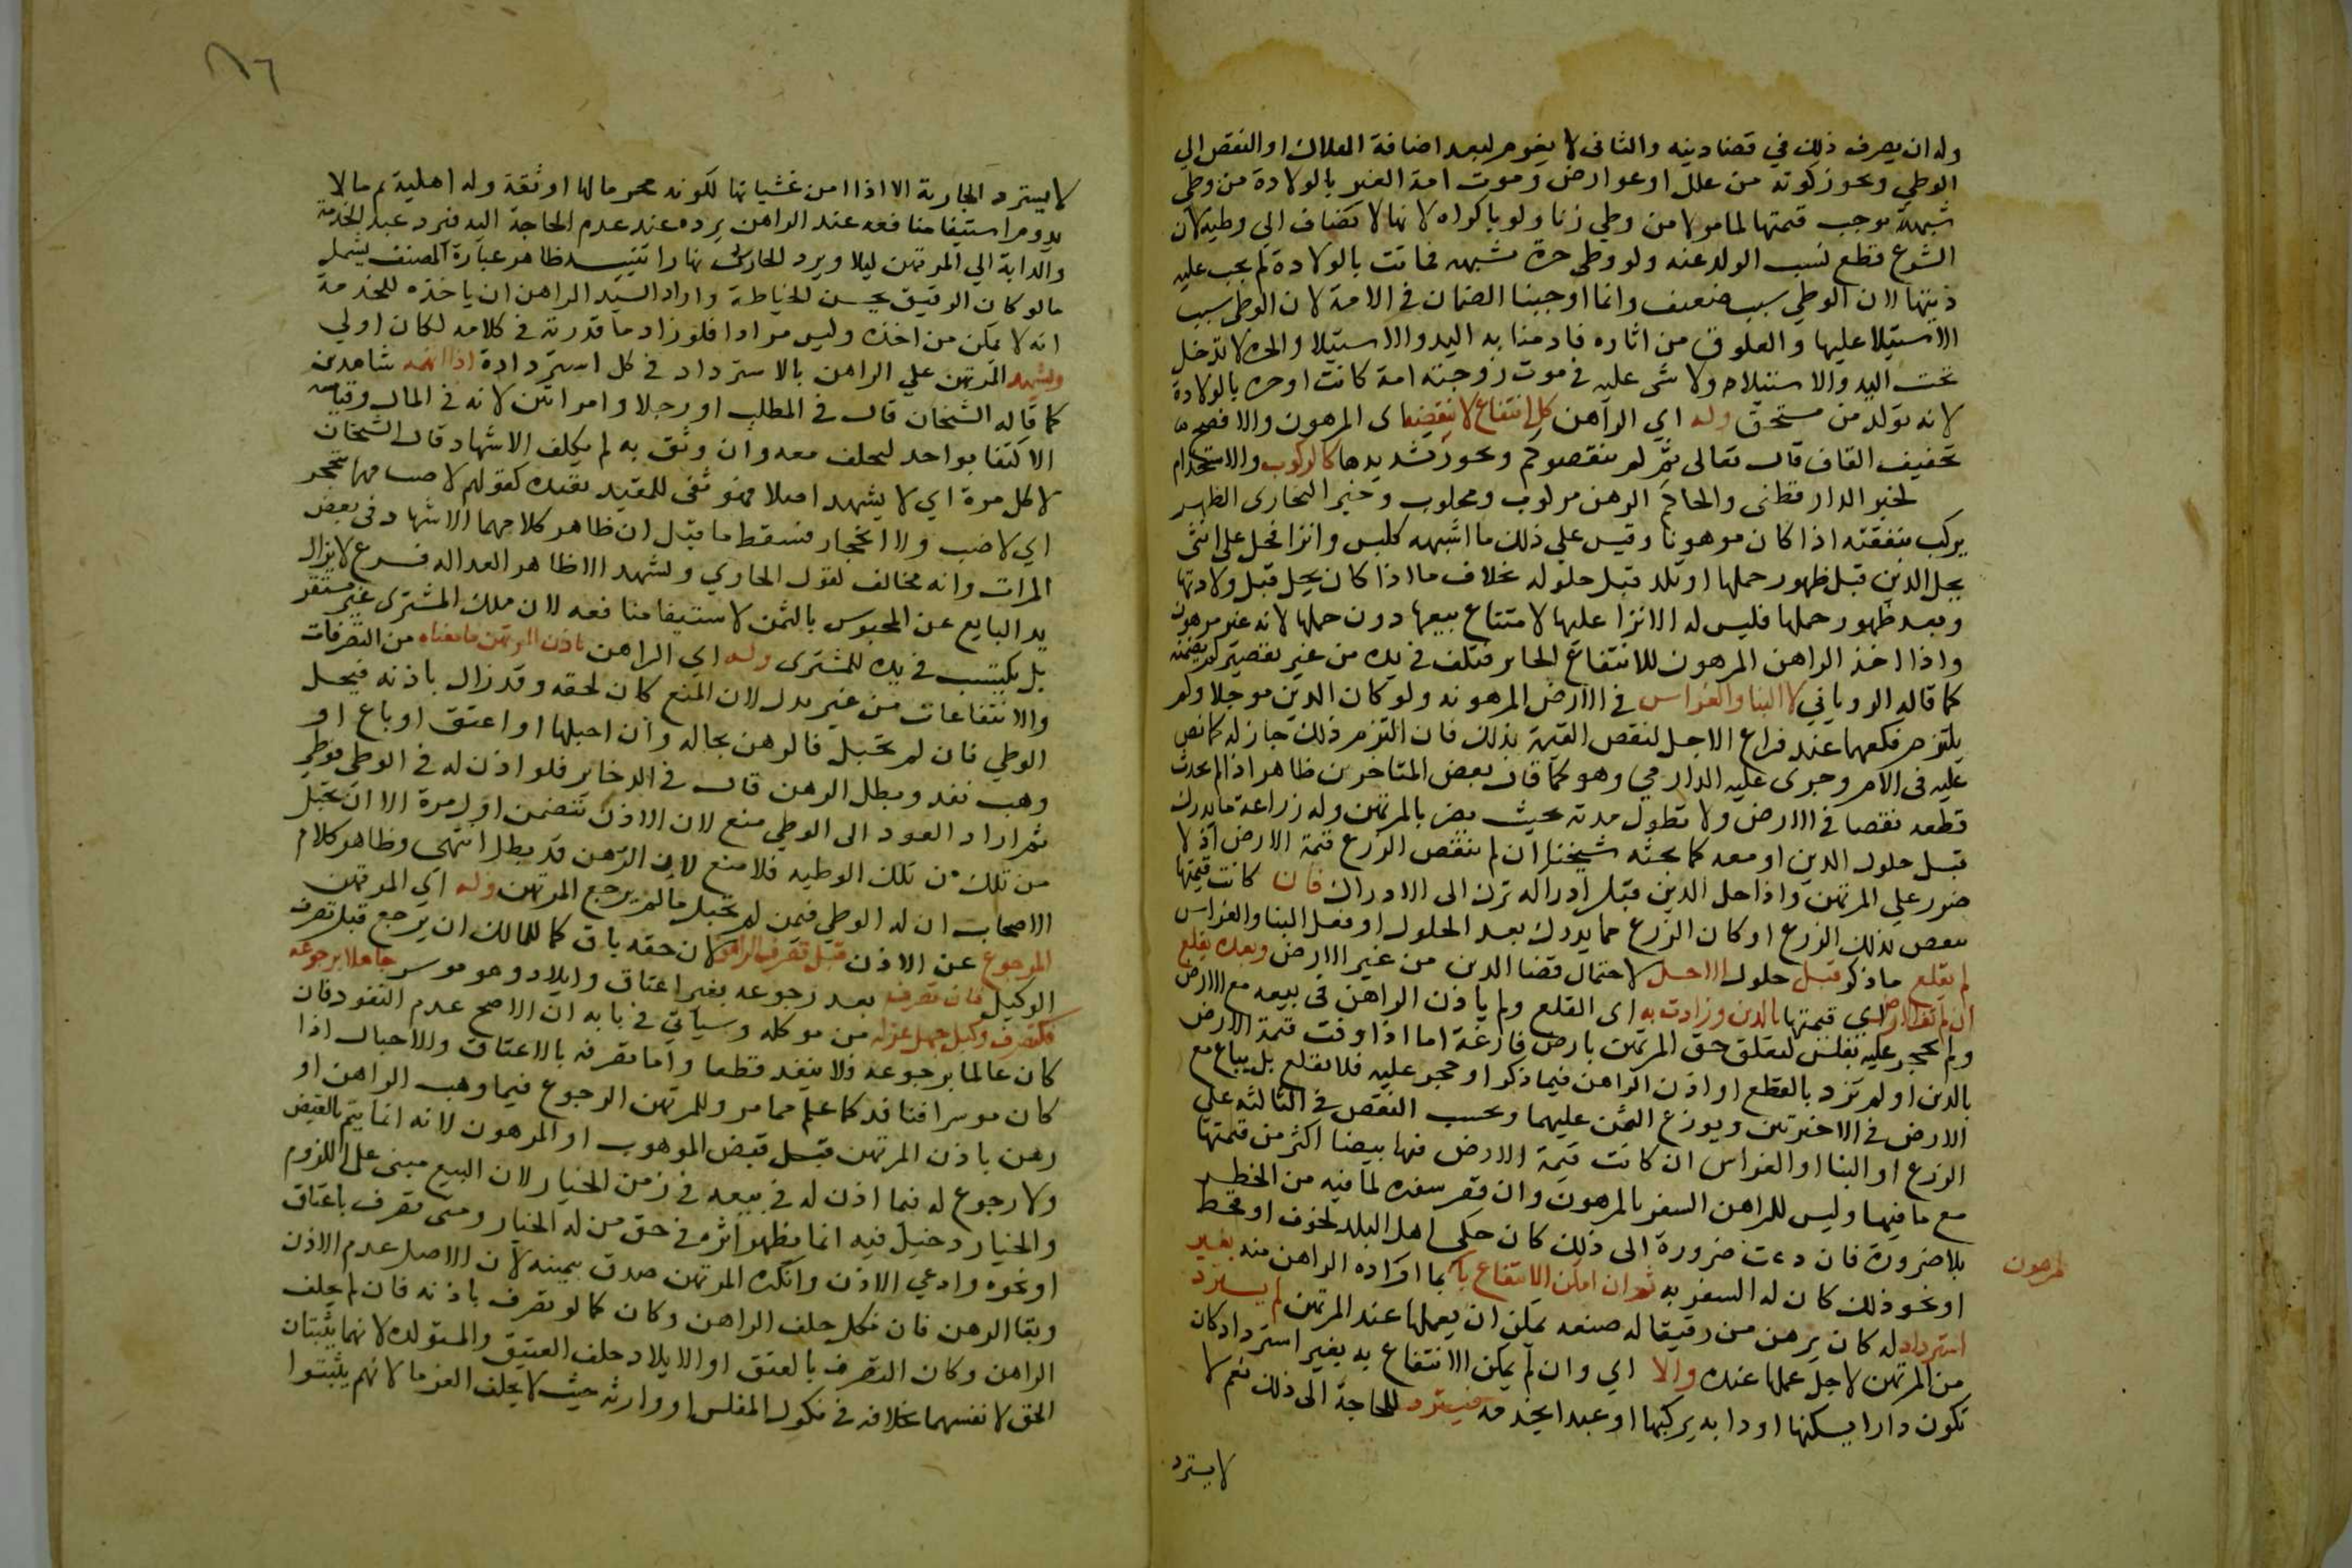 وله ان يصرف ذلك في قضا دينه والثاني لا يغرم لبعد اضافة الهلاك او النقص الي
الوطي وبجوز كونه من علل او عوارض وموت امة الغير بالولادة من وطي
شبهة يوجب قيمتها لما مر لا من وطي زنا ولو باكراه لانها لا تضاف الي وطيه لان
الشرع قطع نسب الولد عنه ولو وطي حرة بشبهه فماتت بالولادة لم يجب عليه
ديتها لان الوطي سبب ضعيف وانما اوجبنا الضمان في الامة لان الوطي سبب
الاستيلا عليها والعلوق من اثاره فادمنا به اليد والاستيلا والحرة لا تدخل
تحت اليد والاستيلا ولا شي عليه في موت زوجته امة كانت او حرة بالولادة
لانه تولد من مستحق وله اي الراهن كل انتفاع لا ينقصه اي المرهون والافصح
تخفيف القاف قال تعالي ثم لم ينقصوكم ويجوز تشديدها كالركوب والاستخدام
لخبر الدارقطني والحاكم الرهن مركوب ومحلوب وخبر البخاري الظهر
يركب بنفقته اذا كان مرهونا وقيس علي ذلك ما اشبهه كلبس وانزا فحل علي انثي
يحل الدين قبل ظهور حملها او تلد قبل حلوله بخلاف ما اذا كان يحل قبل ولادتها
وبعد ظهور حملها فليس له الانزا عليها لامتناع بيعها دون حملها لانه غير مرهون
واذا اخذ الراهن المرهون للانتفاع الجايز فتلف في يده من غير تقصير لم يضمنه
كما قاله الروياني لا البنا والغراس في الارض المرهونه ولو كان الدين موجلا ولم
يلتزم قلعهما عند فراغ الاجل لنقص القيمة بذلك فان التزم ذلك جاز له كما نص
عليه في الام وجري عليه الدارمي وهو كما قال بعض المتاخرين ظاهر اذا لم يحدث
قطعه نقصا في الارض ولا تطول مدته بحيث يضر بالمرتهن وله زراعة ما يدرك
قبل حلول الدين او معه كما بحثه شيخنا ان لم ينقص الزرع قيمة الارض اذ لا
ضرر علي المرتهن واذا حل الدين قبل ادراكه ترك الي الادراك فان كانت قيمتها
تنقص بذلك الزرع او كان الزرع مما يدرك بعد الحلول او فعل البنا والغراس
لم يقلع ما ذكر قبل حلول الاجل لاحتمال قضا الدين من غير الارض وبعده يقلع
ان لم تف الارض اي قيمتها بالدين وزادت به اي القلع ولم ياذن الراهن في بيعه مع الارض
ولم يحجر عليه بفلس لتعلق حق المرتهن بارض فارغة اما اذا وفت قيمة الارض
بالدين او لم تزد بالقطع او اذن الراهن فيما ذكر او حجر عليه فلا يقلع بل يباع مع
الارض في الاخيرتين ويوزع الثمن عليهما ويحسب النقص في الثالثه علي
الزرع او البنا او الغراس ان كانت قيمة الارض فيها بيضا اكثر من قيمتها
مع ما فيها وليس للراهن السفر بالمرهون وان قصر سفره لما فيه من الخطر
بلا ضرورة فان دعت ضرورة الي ذلك كان جلي اهل البلد لخوف او قحط
او نحو ذلك كان له السفر به ثم ان امكن الانتفاع بالمرهون بما اراده الراهن منه بغير
استرداد له كان يرهن من رقيقا له صنعه يمكن ان يعملها عند المرتهن لم يسترد
من المرتهن لاجل عملها عنده والا اي وان لم يمكن الانتفاع به بغير استرداد كان
تكون دارا يسكنها او دابه يركبها او عبدا يخدمه فيسترد للحاجة الي ذلك نعم لا
لا يسترد
٨٦
لا يسترد الجارية الا اذا امن غشيانها لكونه محرما لها او ثقة وله اهلية ثم ما لا
يدوم استيفا منافعه عند الراهن يرده عند عدم الحاجة اليه فيرد عبد الخدمة
والدابة الي المرتهن ليلا ويرد الحارس نهارا تنبيه ظاهر عبارة المصنف يشمل
ما لو كان الرقيق يحسن الخياطة واراد السيد الراهن ان ياخذه للخدمة
انه لا يمكن من اخذه وليس مرادا فلو زاد ما قدرته في كلامه لكان اولي
ويشهد المرتهن علي الراهن بالاسترداد في كل استردادة اذا اتهمه شاهدين
كما قاله الشيخان قال في المطلب او رجلا وامراتين لانه في المال وقياسه
الاكتفا بواحد ليحلف معه وان وثق به لم يكلف الاشهاد قال الشيخان
لا كل مرة اي لا يشهد اصلا فهو نفي للمقيد بقيده كقولهم لا ضب فيها ينجحر
اي لا ضب ولا انجحار فسقط ما قيل ان ظاهر كلامهما الاشهاد في بعض
المرات وانه مخالف لقول الحاوي ويشهد الا ظاهر العداله فرع لا يزال
يد البايع عن المحبوس بالثمن لاستيفا منافعه لان ملك المشتري غير مستقر
بل يكتسب في يده للمشتري وله اي الراهن باذن المرتهن ما منعناه من التصرفات
والانتفاعات من غير بدل لان المنع كان لحقه وقد زال باذنه فيحل
الوطي فان لم تحبل فالرهن بحاله وان احبلها او اعتق او باع او
وهب نفذ وبطل الرهن قال في الذخاير فلو اذن له في الوطي فوطي
ثم اراد العود الي الوطي منع لان الاذن يتضمن اول مرة الا ان تحبل
من تلك من تلك الوطيه فلا منع لان الرهن قد بطل انتهي وظاهر كلام
الاصحاب ان له الوطي فيمن لم تحبل ما لم يرجع المرتهن وله اي المرتهن
الرجوع عن الاذن قبل تصرف الراهن لان حقه باق كما للمالك ان يرجع قبل تصرف
الوكيل فان تصرف بعد رجوعه بغير اعتاق وايلاد وهو موسر جاهلا برجوعه
فكتصرف وكيل جهل عزله من موكله وسياتي في بابه ان الاصح عدم النفوذ فان
كان عالما برجوعه فلا ينفذ قطعا واما تصرفه بالاعتاق والاحبال اذا
كان موسرا فنافذ كما علم مما مر وللمرتهن الرجوع فيما وهب الراهن او
رهن باذن المرتهن قبل قبض الموهوب او المرهون لانه انما يتم بالقبض
ولا رجوع له فيما اذن له في بيعه في زمن الخيار لان البيع مبني علي اللزوم
والخيار دخيل فيه انما يظهر اثره في حق من له الخيار ومتي تصرف باعتاق
او نحوه وادعي الاذن وانكره المرتهن صدق بيمينه لان الاصل عدم الاذن
وبقا الرهن فان نكل حلف الراهن وكان كما لو تصرف باذنه فان لم يحلف
الراهن وكان التصرف بالعتق او الايلاد حلف العتيق والمستولدة لانهما يثبتان
الحق لانفسهما بخلافه في نكول المفلس او وارثه حيث لا يحلف الغرما لانهم يثبتوا